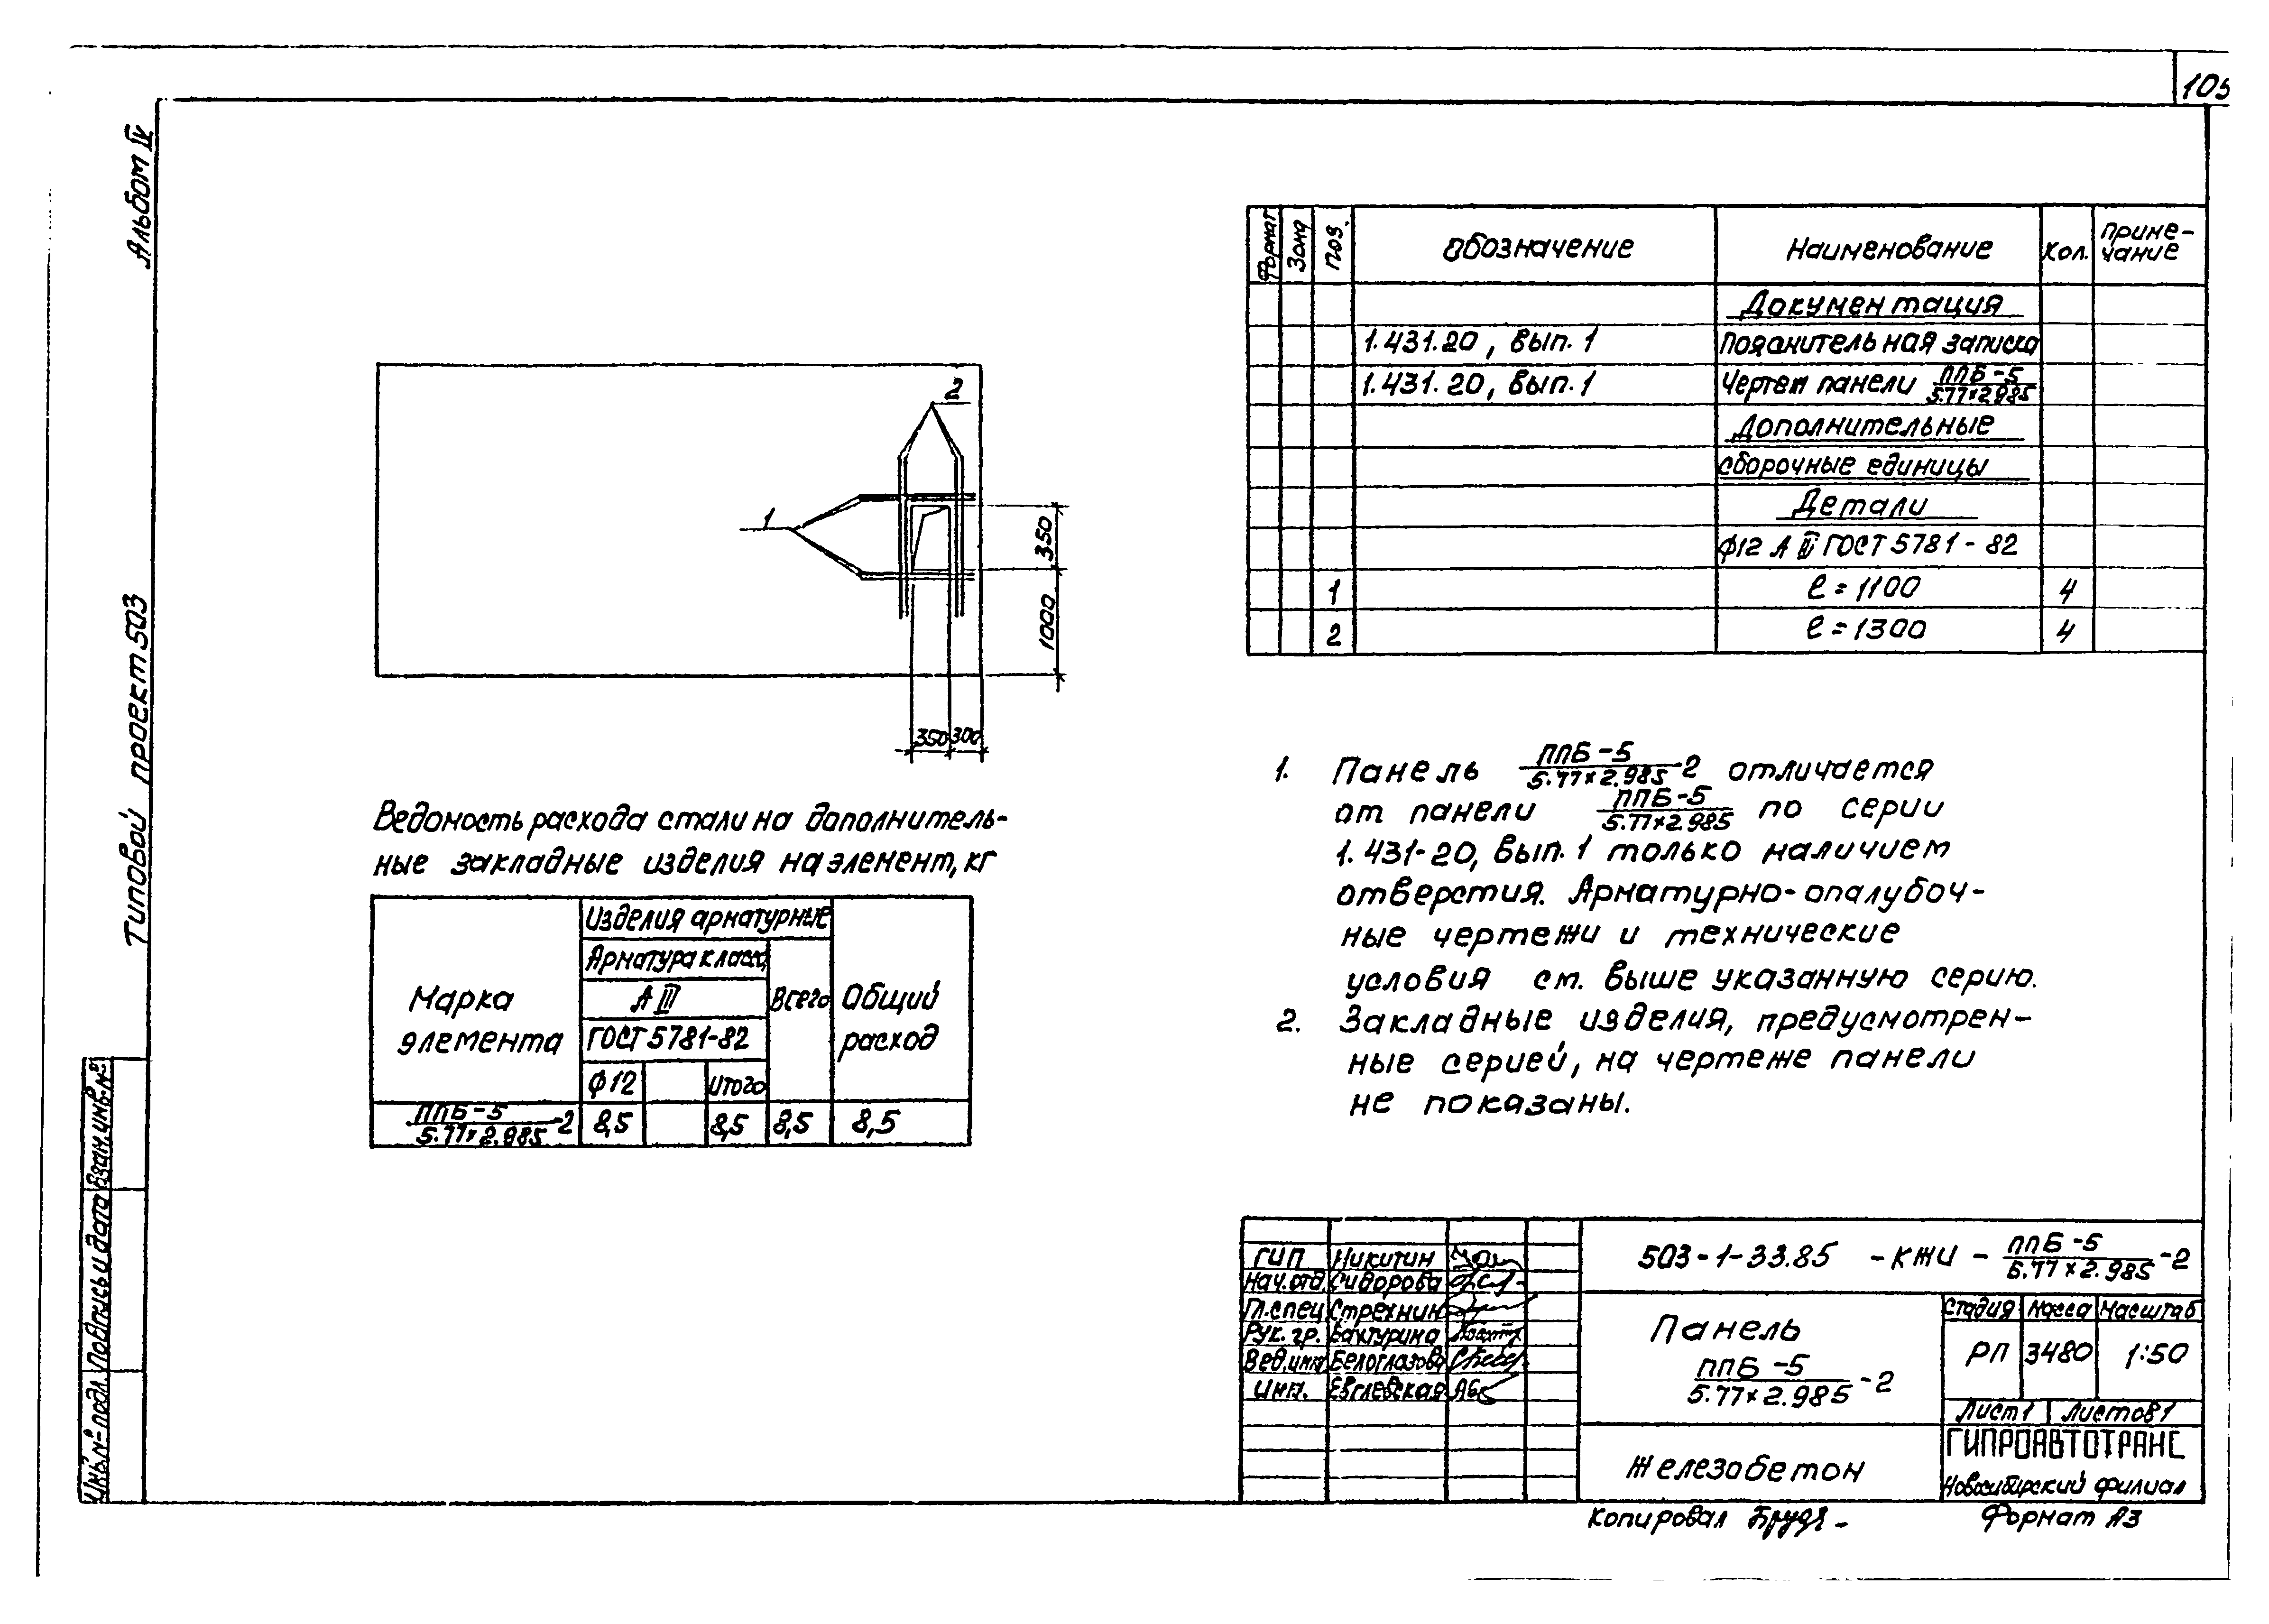 105
Альбом IV
Типовой проект 503
Взам.инв.№
Подпись и дата
Инв.№ подл.
2
1
350
1000
350 300
Формат Зона Поз. Обозначение Наименование Кол. Приме-
чание
Документация
1.431.20, вып.1 Пояснительная записка
1.431.20, вып.1 Чертеж панели ППБ-5
5.77×2.985
Дополнительные
сборочные единицы
Детали
ф12 А III ГОСТ 5781-82
1 ℓ=1100 4
2 ℓ=1300 4
Ведомость расхода стали на дополнитель-
ные закладные изделия на элемент, кг
Марка
элемента
Изделия арматурные
Арматура класса
А III
ГОСТ 5781-82
ф12 Итого
Всего
Общий
расход
ППБ-5
5.77×2.985 -2 8,5 8,5 8,5 8,5
1. Панель ППБ-5
5.77×2.985 -2 отличается
от панели ППБ-5
5.77×2.985 по серии
1.431-20, вып.1 только наличием
отверстия. Арматурно-опалубоч-
ные чертежи и технические
условия см. выше указанную серию.
2. Закладные изделия, предусмотрен-
ные серией, на чертеже панели
не показаны.
ГИП Никитин
Нач.отд. Сидорова
Гл.спец Стрехнин
Рук. гр. Бахтурина
Вед.инж Белоглазова
Инж. Евглевская
503-1-33.85 -КЖИ- ППБ-5
5.77×2.985 -2
Панель
ППБ-5
5.77×2.985 -2
Железобетон
Стадия Масса Масштаб
РП 3480 1:50
Лист 1 Листов 1
ГИПРОАВТОТРАНС
Новосибирский филиал
Копировал
Формат А3